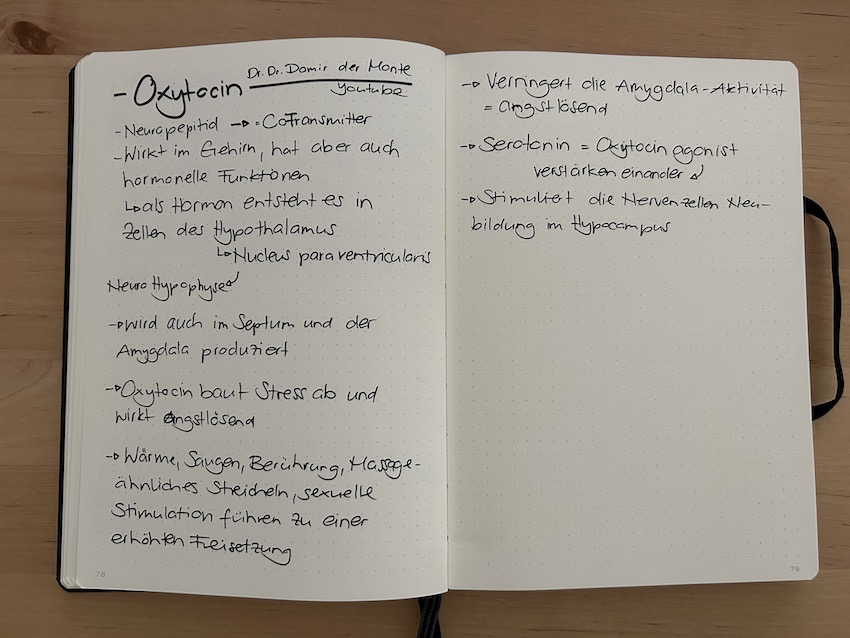 - Oxytocin Dr. Dr. Damir der Monte
Youtube
- Neuropepitid → = CoTransmitter
- Wirkt im Gehirn, hat aber auch
hormonelle Funktionen
↳ als Hormon entsteht es in
Zellen des Hypothalamus
↳ Nucleus paraventricularis
NeuroHypophyse ↲
→ wird auch im Septum und der
Amygdala produziert
→ Oxytocin baut Stress ab und
wirkt angstlösend
→ Wärme, Saugen, Berührung, Massage-
ähnliches Streicheln, sexuelle
Stimulation führen zu einer
erhöhten Freisetzung
78
→ Verringert die Amygdala-Aktivität
= angstlösend
→ Serotonin = Oxytocin agonist
verstärken einander ↲
→ Stimuliert die Nervenzellen Neu-
bildung im Hypocampus
79